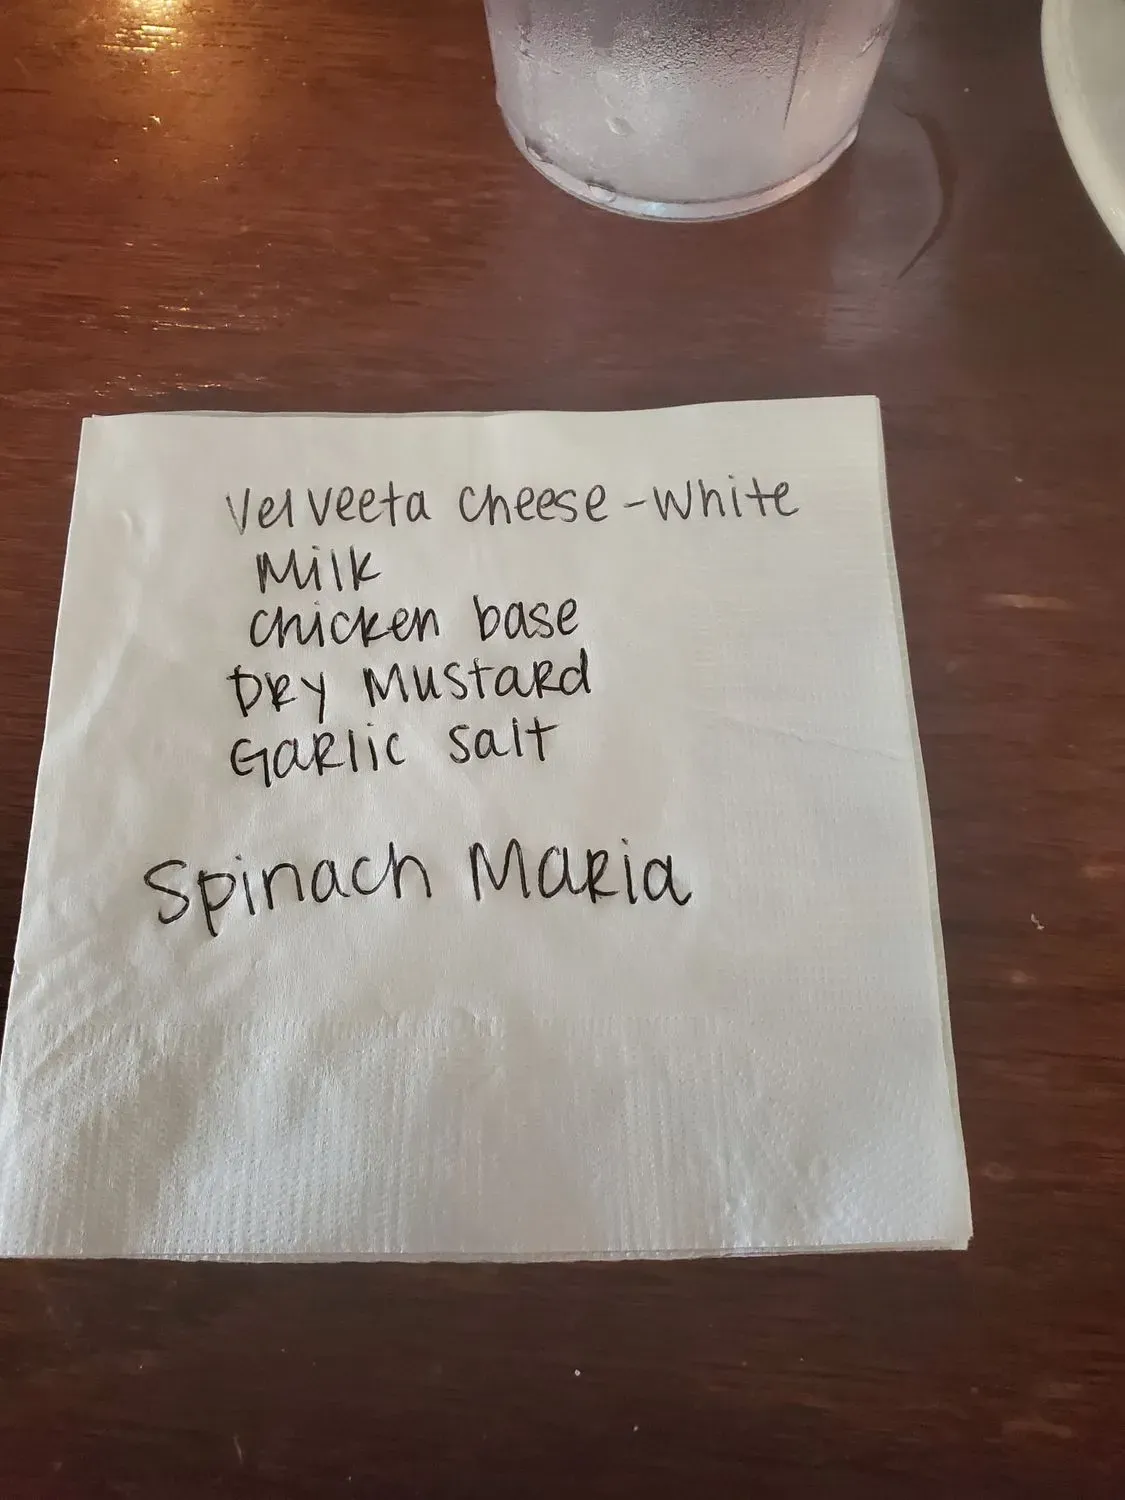 Velveeta cheese - White
Milk
chicken base
Dry Mustard
Garlic salt
Spinach Maria